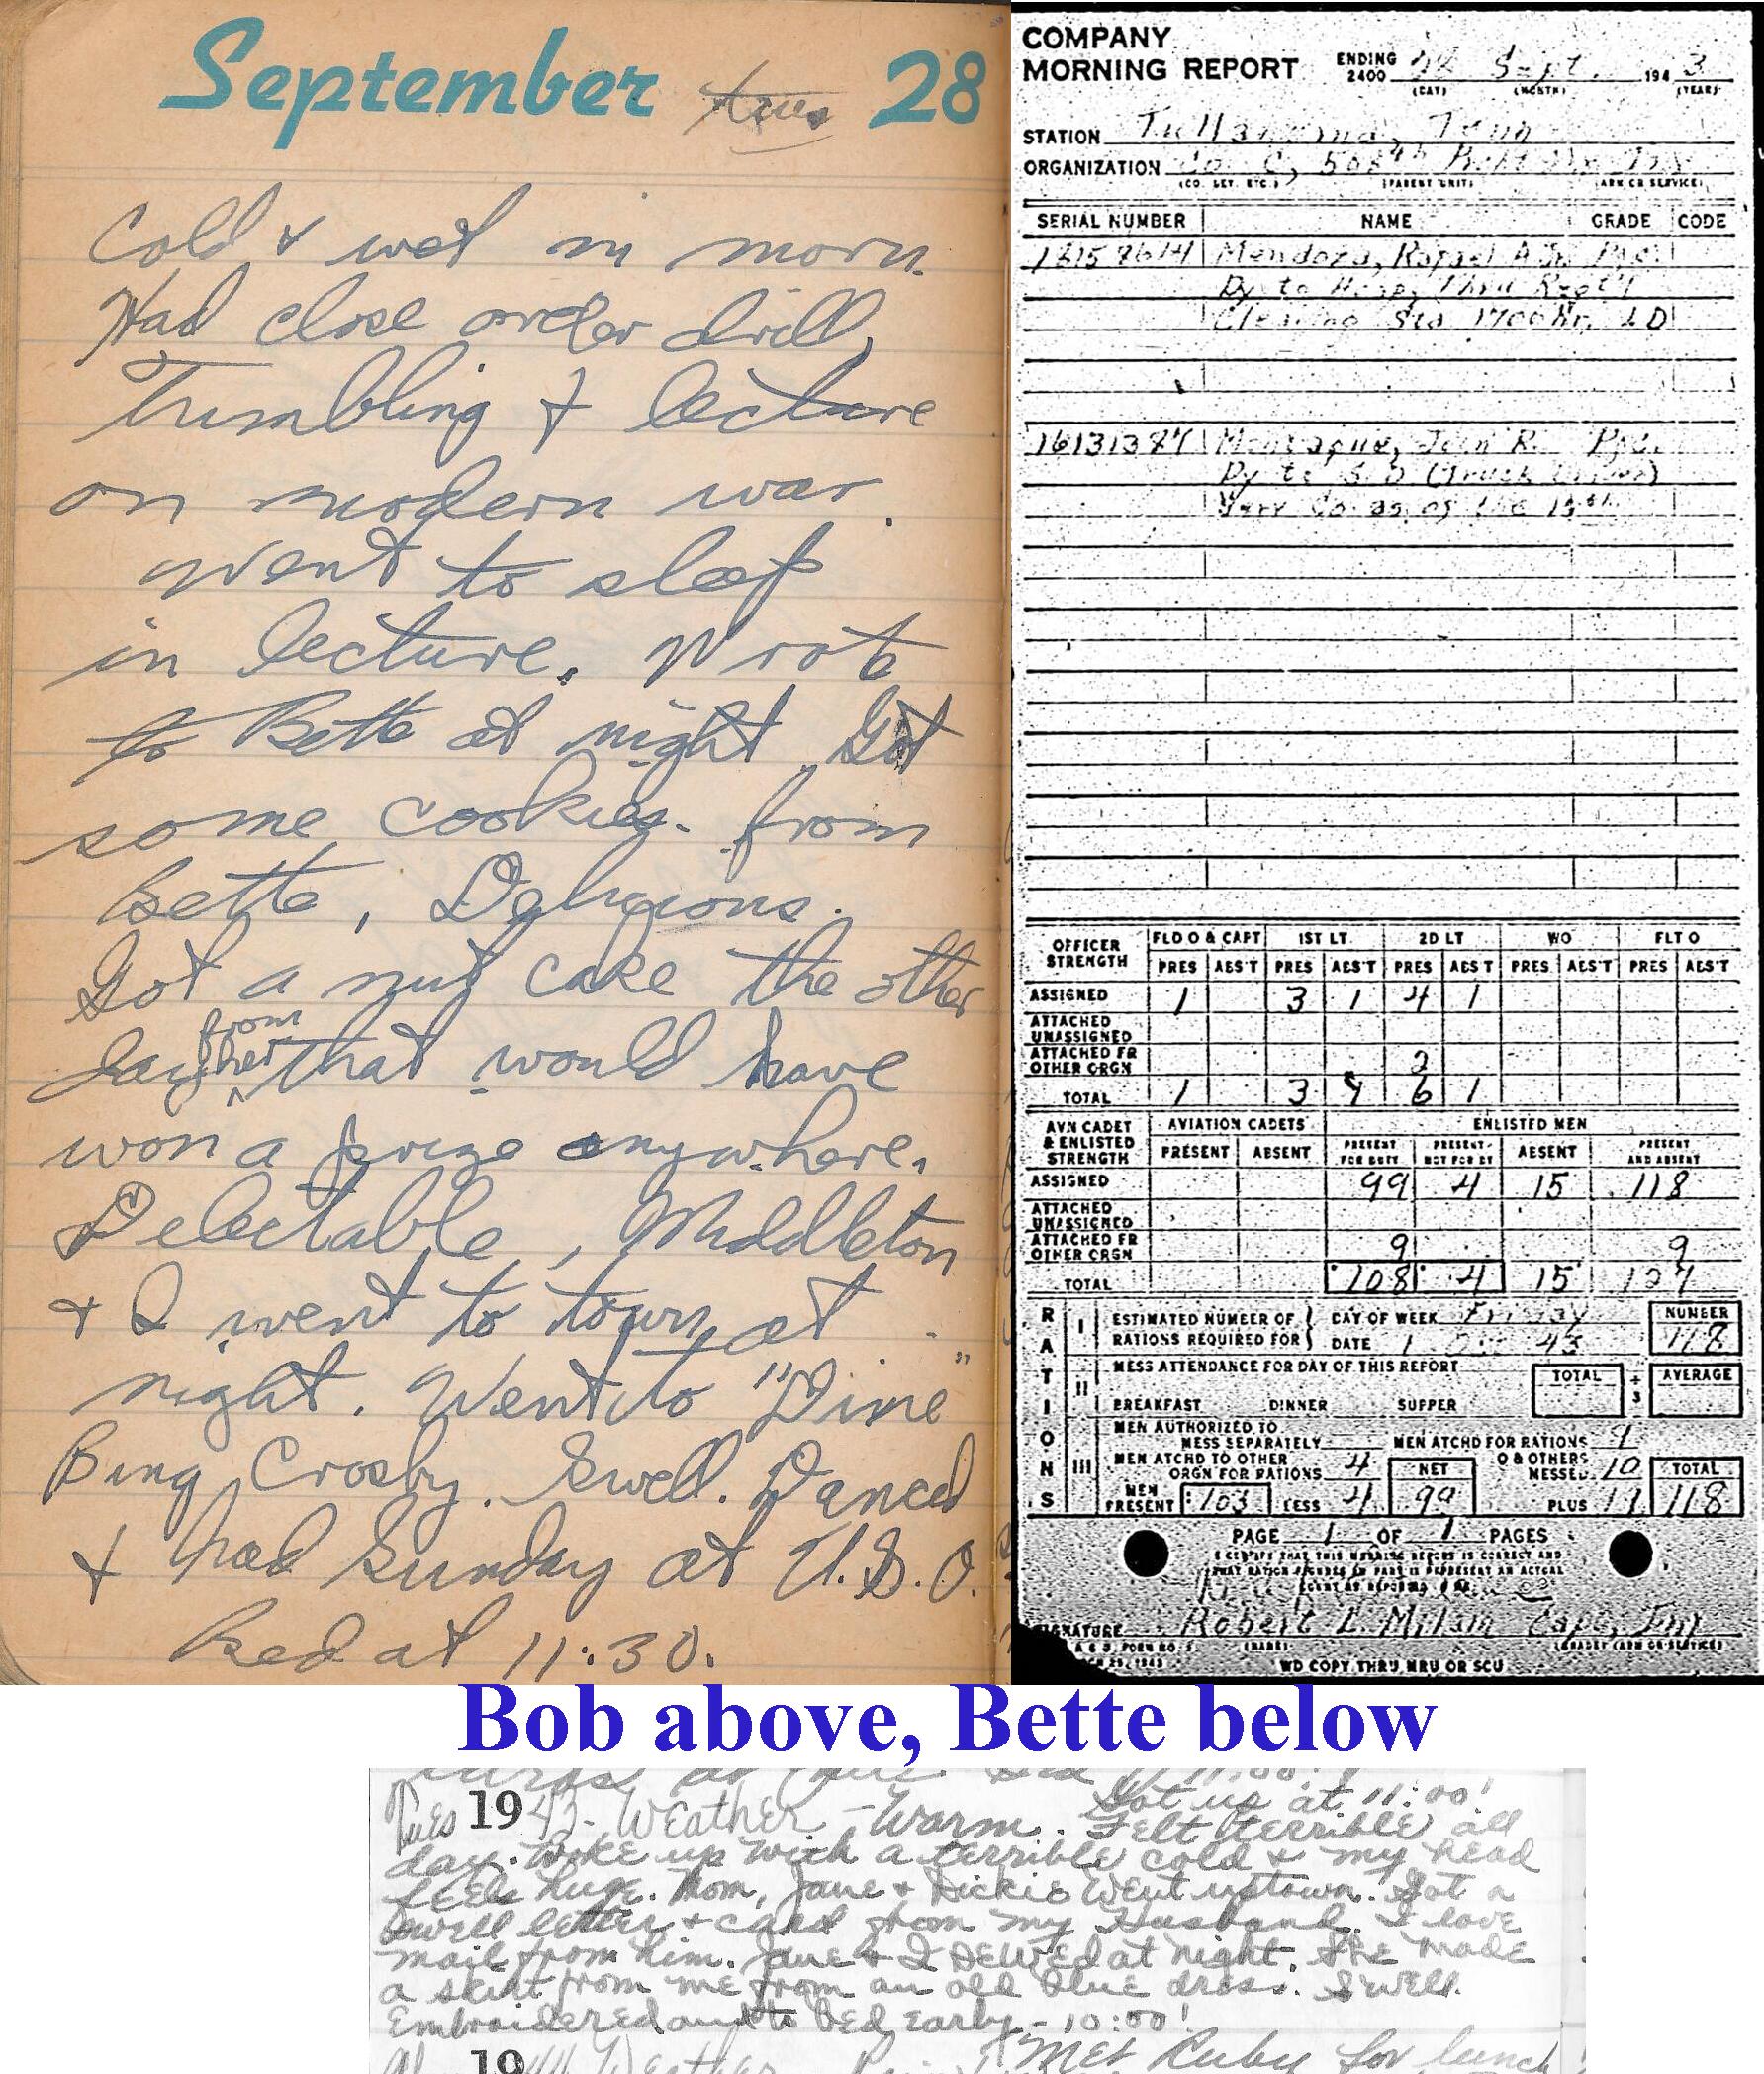 September Tues 28
Cold & wet in morn.
Had close order drill,
Tumbling & lecture
on modern war.
Went to sleep
in lecture. Wrote
to Bette at night. Got
some cookies from
Bette, Delicious.
Got a nut cake the other
day from her that would have
won a prize anywhere.
Delectable, Middleton
& I went to town at
night. Went to "Dixie"
Bing Crosby. Swell. Danced
& had Sunday at U.S.O.
Bed at 11:30.
COMPANY
MORNING REPORT ENDING 2400 28 Sept. 1943
(DAY) (MONTH) (YEAR)
STATION Tullahoma, Tenn
ORGANIZATION Co. C, 508th
(CO. LET. ETC.) (PARENT UNIT) (ARM OR SERVICE)
SERIAL NUMBER NAME GRADE CODE
Mendoza, Rafael A Jr. Pvt.
Dy to Hosp, Thru Reg't'l
Clearing Sta 1700 hr. LD
16131387 John R. Pvt.
Dy to S D (Truck Driver)
Serv Co as of the
OFFICER STRENGTH FLD O & CAPT 1ST LT 2D LT WO FLT O
PRES ABS'T PRES ABS'T PRES ABS'T PRES ABS'T PRES ABS'T
ASSIGNED 1 3 1 4 1
ATTACHED UNASSIGNED
ATTACHED FR OTHER ORGN 2
TOTAL 1 3 6 1
AVN CADET & ENLISTED STRENGTH AVIATION CADETS ENLISTED MEN
PRESENT ABSENT PRESENT FOR DUTY PRESENT NOT FOR DY ABSENT PRESENT AND ABSENT
ASSIGNED 99 4 15 118
ATTACHED UNASSIGNED
ATTACHED FR OTHER ORGN 9 9
TOTAL 108 4 15 127
RATIONS
I ESTIMATED NUMBER OF RATIONS REQUIRED FOR DAY OF WEEK Friday NUMBER
DATE 1 Oct 43 118
II MESS ATTENDANCE FOR DAY OF THIS REPORT TOTAL ÷ 3 AVERAGE
BREAKFAST DINNER SUPPER
III MEN AUTHORIZED TO MESS SEPARATELY MEN ATCHD FOR RATIONS 9
MEN ATCHD TO OTHER ORGN FOR RATIONS 4 NET O & OTHERS MESSED 10 TOTAL
MEN PRESENT 103 LESS 4 99 PLUS 19 118
PAGE 1 OF 1 PAGES
I CERTIFY THAT THIS MORNING REPORT IS CORRECT AND
THAT RATION FIGURES IN PART III REPRESENT AN ACTUAL
SIGNATURE Robert L. Milam Capt, Inf
(NAME) (GRADE) (ARM OR SERVICE)
WD COPY THRU MRU OR SCU
Bob above, Bette below
Tues 1943 - Weather - Warm. Got up at 11:00!
Felt terrible all
day. Woke up with a terrible cold & my head
feels huge. Mom, Jane & Dickie went uptown. Got a
swell letter & card from my Husband. I love
mail from him. Jane & I sewed at night. She made
a skirt from me from an old blue dress. Swell.
Embroidered and to bed early - 10:00!
19 Weather Met Ruby for lunch